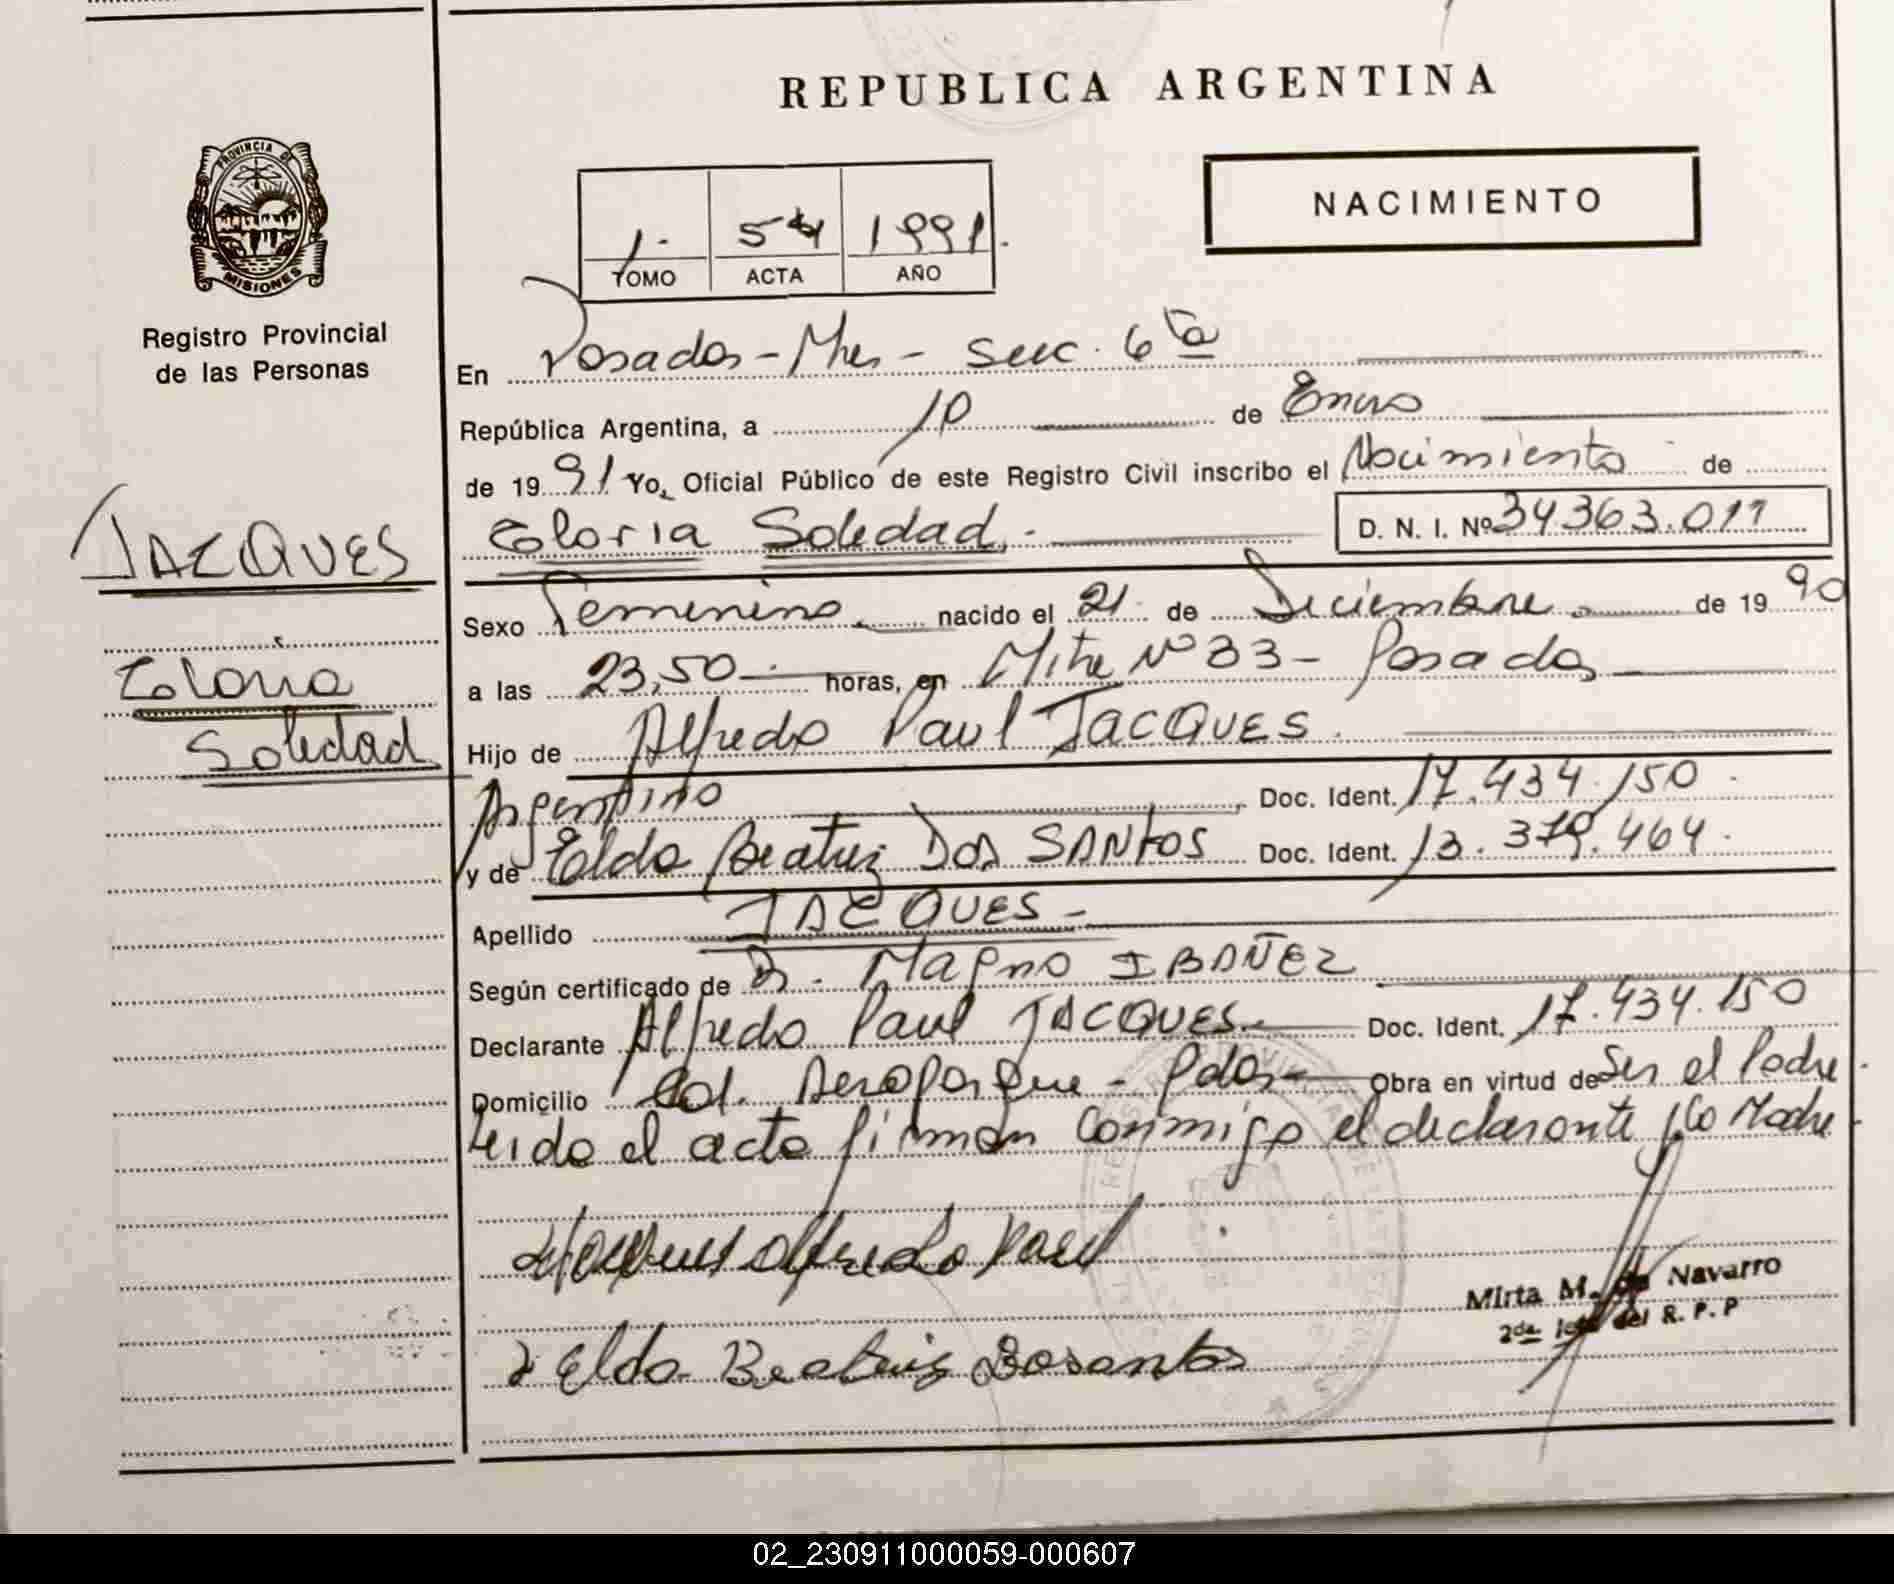 REPUBLICA ARGENTINA
NACIMIENTO
1. 1991.
TOMO ACTA AÑO
PROVINCIA DE
MISIONES
Registro Provincial
de las Personas
En Posadas - Mnes - secc. 6ta
República Argentina, a 10 de Enero
de 1991 Yo, Oficial Público de este Registro Civil inscribo el Nacimiento de
Gloria Soledad.- D. N. I. Nº 34363.011
JACQUES
Gloria
Soledad
Sexo Femenino. nacido el 21 de Diciembre. de 1990
a las 23,50.- horas, en Mitre Nº 33 - Posadas
Hijo de Alfredo Paul JACQUES.
Argentino Doc. Ident. 17.434.150.
y de Elda Beatriz DOS SANTOS Doc. Ident. 13.379.464.
Apellido JACQUES -
Según certificado de Dr. Magno IBAÑEZ
Declarante Alfredo Paul JACQUES.- Doc. Ident. 17.434.150
Domicilio Col. Aeroparque - Pdas- Obra en virtud de Ser el Padre.
Leida el acta firman conmigo el declarante y la Madre.
Jacques Alfredo Paul
Mirta M. de Navarro
2da del R. P. P
Elda Beatriz Dosantos
02_230911000059-000607